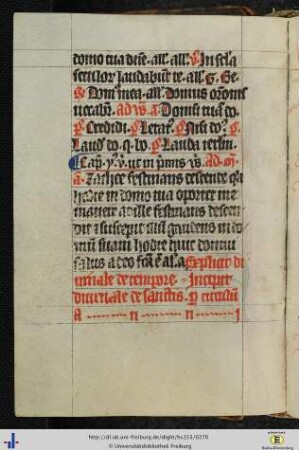 domo tua dñe. all. all. V. In scla
seculor laudabunt te. all. G. Be
Dom mea. all. Domus orōnis
vocabit. Ad vs. a. Domū tuā do
p. Credidi. p. Letat. p. Nisi do. p.
Laud do. q. bo. p. Lauda ierlm.
Cap. y. v. ut in prmis vs. Ad m.
a. Zachee festinans descende qa
hodie in domo tua oportet me
manere at ille festinans descen
dit suscepit illū gaudens in do
mū suam hodie huic domui
salus a deo fca e al. a Explicit di
urnale de tempore. Incipit
diurnale de sanctis. p circulū
A n n i
http://dl.ub.uni-freiburg.de/diglit/hs253/0270
© Universitätsbibliothek Freiburg